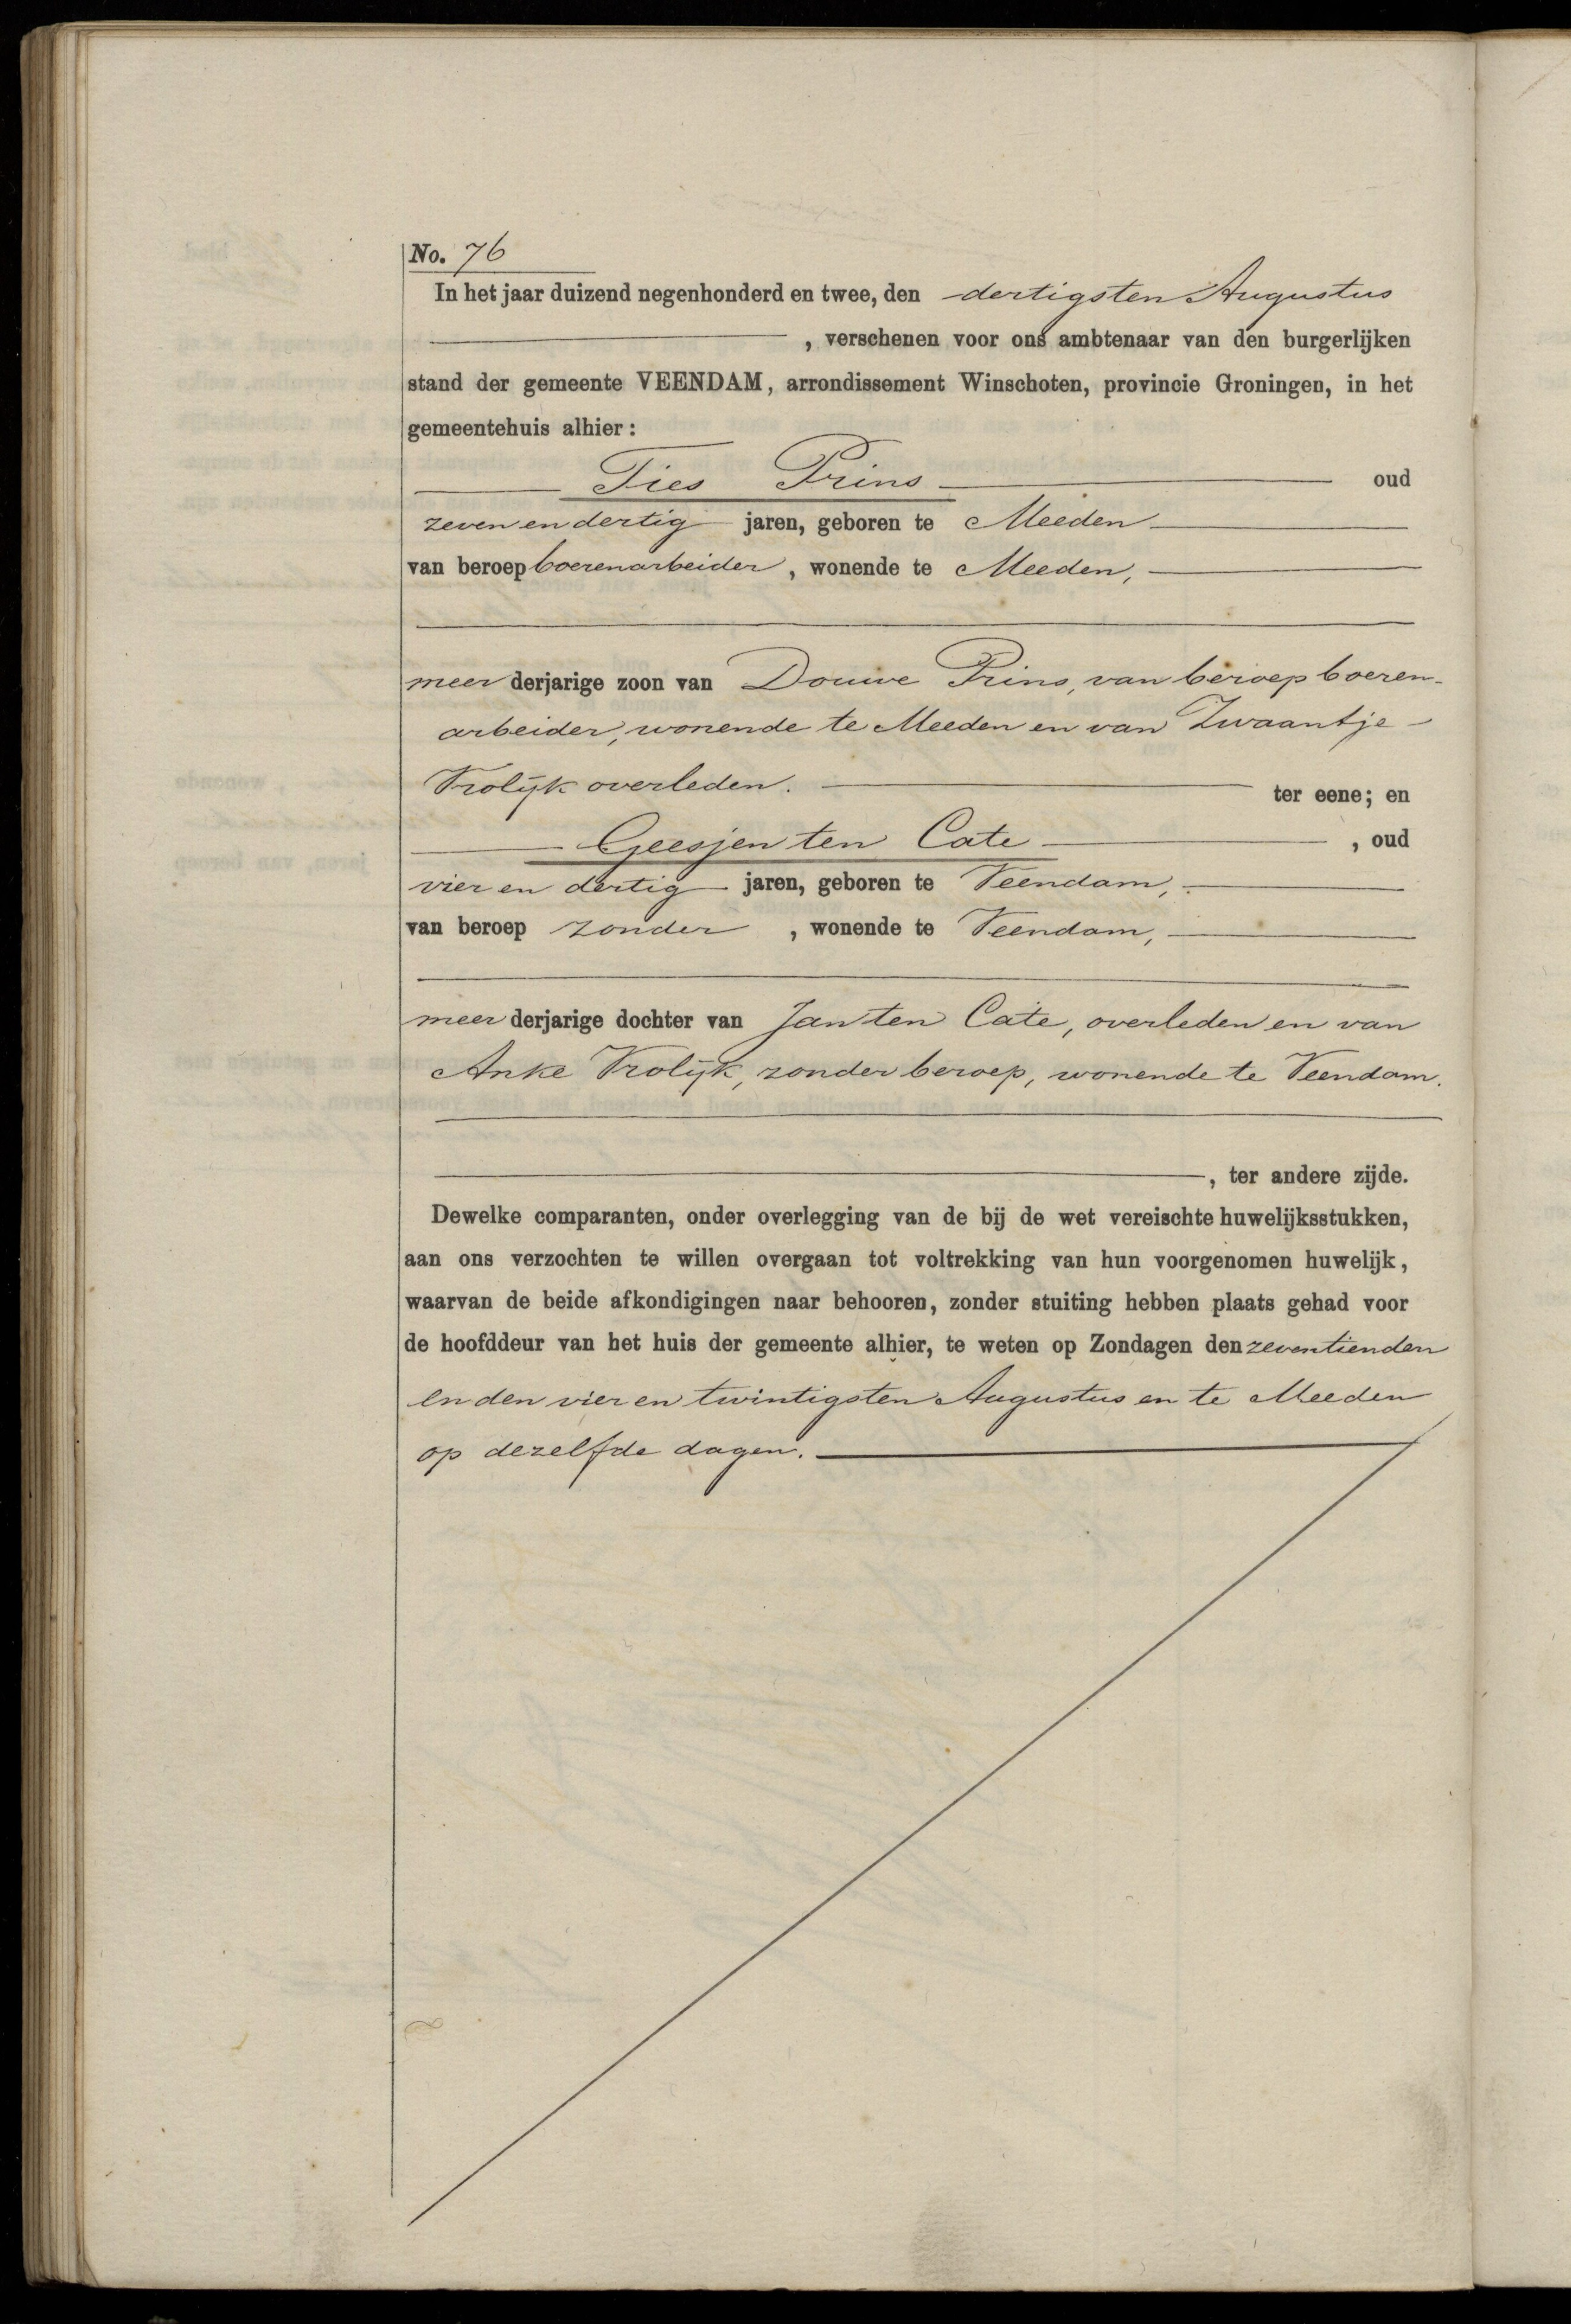 No. 76
In het jaar duizend negenhonderd en twee, den dertigsten Augustus
, verschenen voor ons ambtenaar van den burgerlijken
stand der gemeente VEENDAM, arrondissement Winschoten, provincie Groningen, in het
gemeentehuis alhier:
Ties Prins oud
zeven en dertig jaren, geboren te Meeden
van beroep boerenarbeider, wonende te Meeden,
meerderjarige zoon van Douwe Prins, van beroep boeren-
arbeider, wonende te Meeden en van Zwaantje
Vrolijk overleden. ter eene; en
Geesjen ten Cate, oud
vier en dertig jaren, geboren te Veendam,
van beroep zonder, wonende te Veendam,
meerderjarige dochter van Jan ten Cate, overleden en van
Anke Vrolijk, zonder beroep, wonende te Veendam.
, ter andere zijde.
Dewelke comparanten, onder overlegging van de bij de wet vereischte huwelijksstukken,
aan ons verzochten te willen overgaan tot voltrekking van hun voorgenomen huwelijk,
waarvan de beide afkondigingen naar behooren, zonder stuiting hebben plaats gehad voor
de hoofddeur van het huis der gemeente alhier, te weten op Zondagen den zeventienden
en den vier en twintigsten Augustus en te Meeden
op dezelfde dagen.